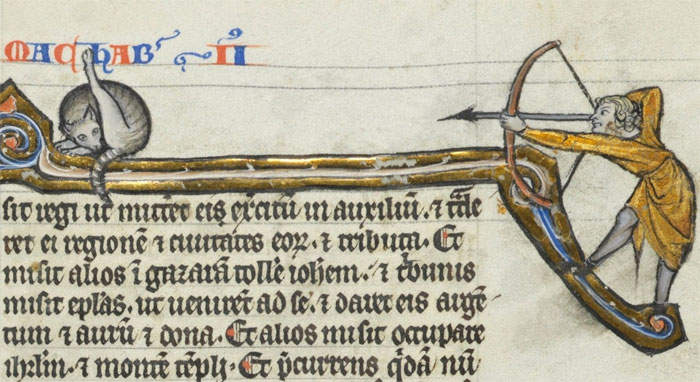 MACHAB' II
sit regi ut mitteret eis exercitū in auxiliū. ⁊ tᵃde
ret ei regionē ⁊ ciuitates eoꝝ. ⁊ tributa. Et
misit alios ī gazarā tolle iohem. ⁊ tᵇunis
misit eplas. ut ueniret ad se. ⁊ daret eis argē
tum ⁊ aurū ⁊ dona. Et alios misit occupare
ihrlm. ⁊ montē tēpli. Et p̄currens qͥdā nū